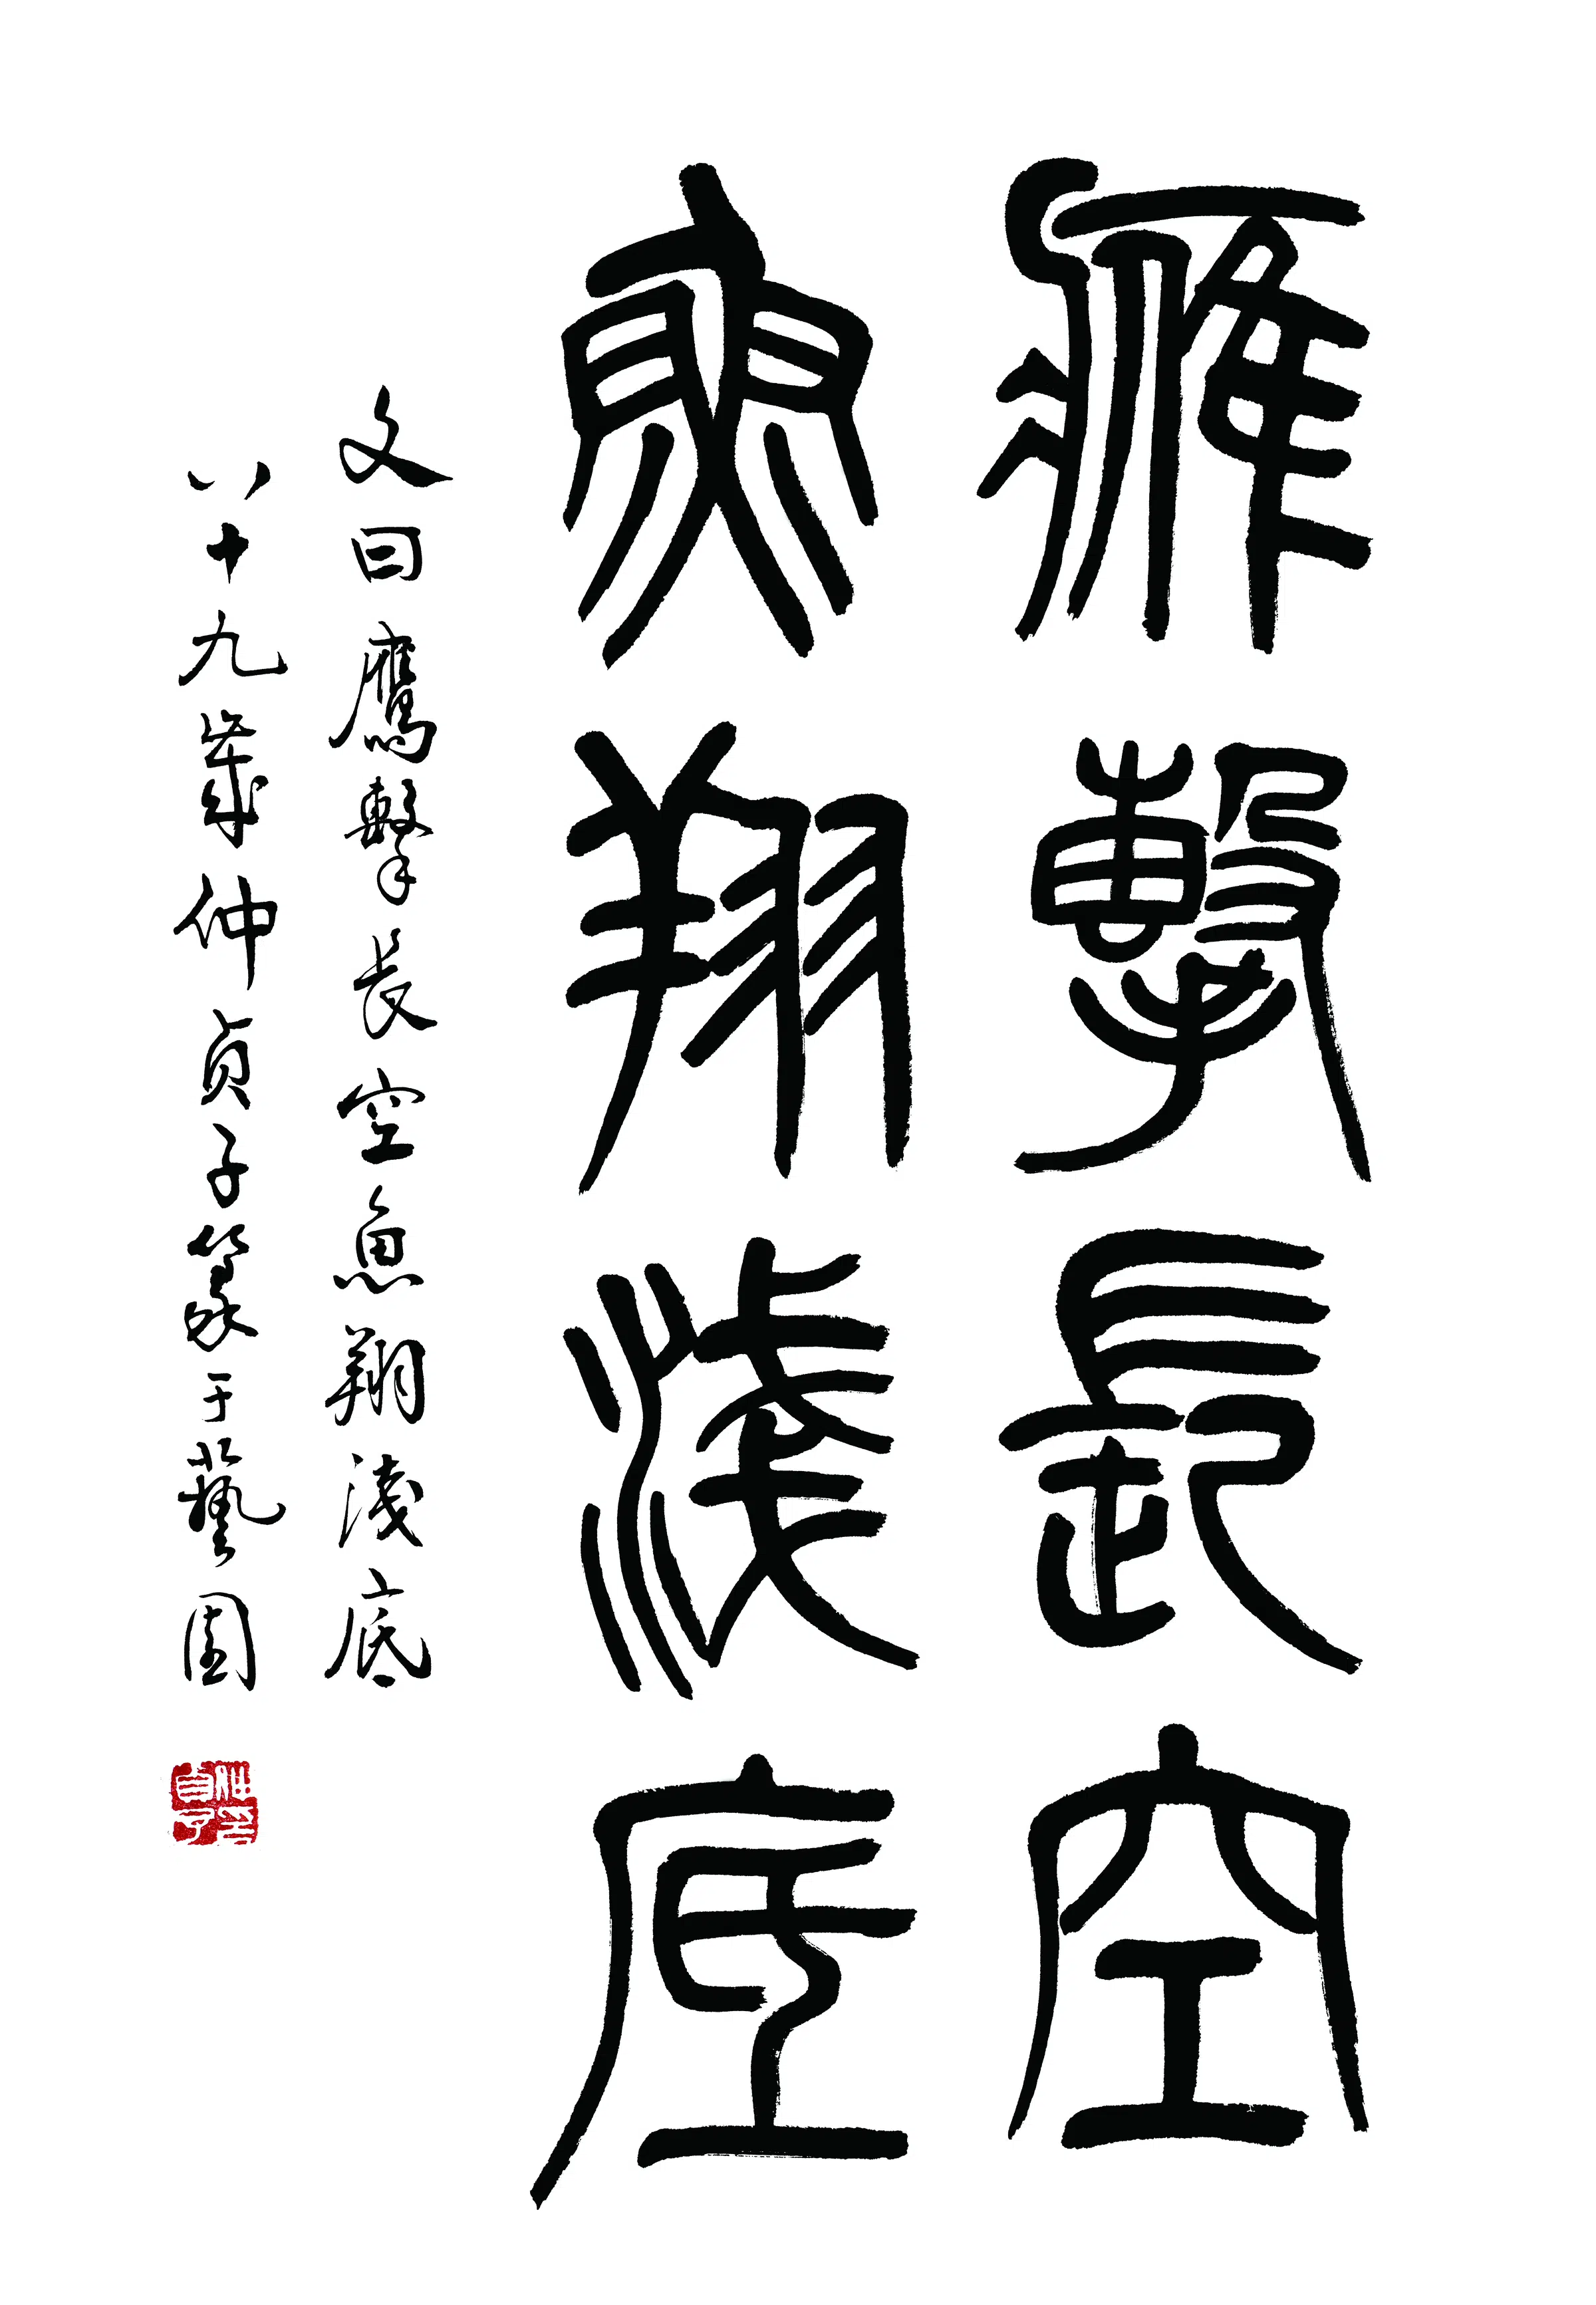 鷹擊長空
魚翔淺底
文曰鷹擊長空魚翔淺底
八十九叟仲貞子篆于藝園
仲貞子印